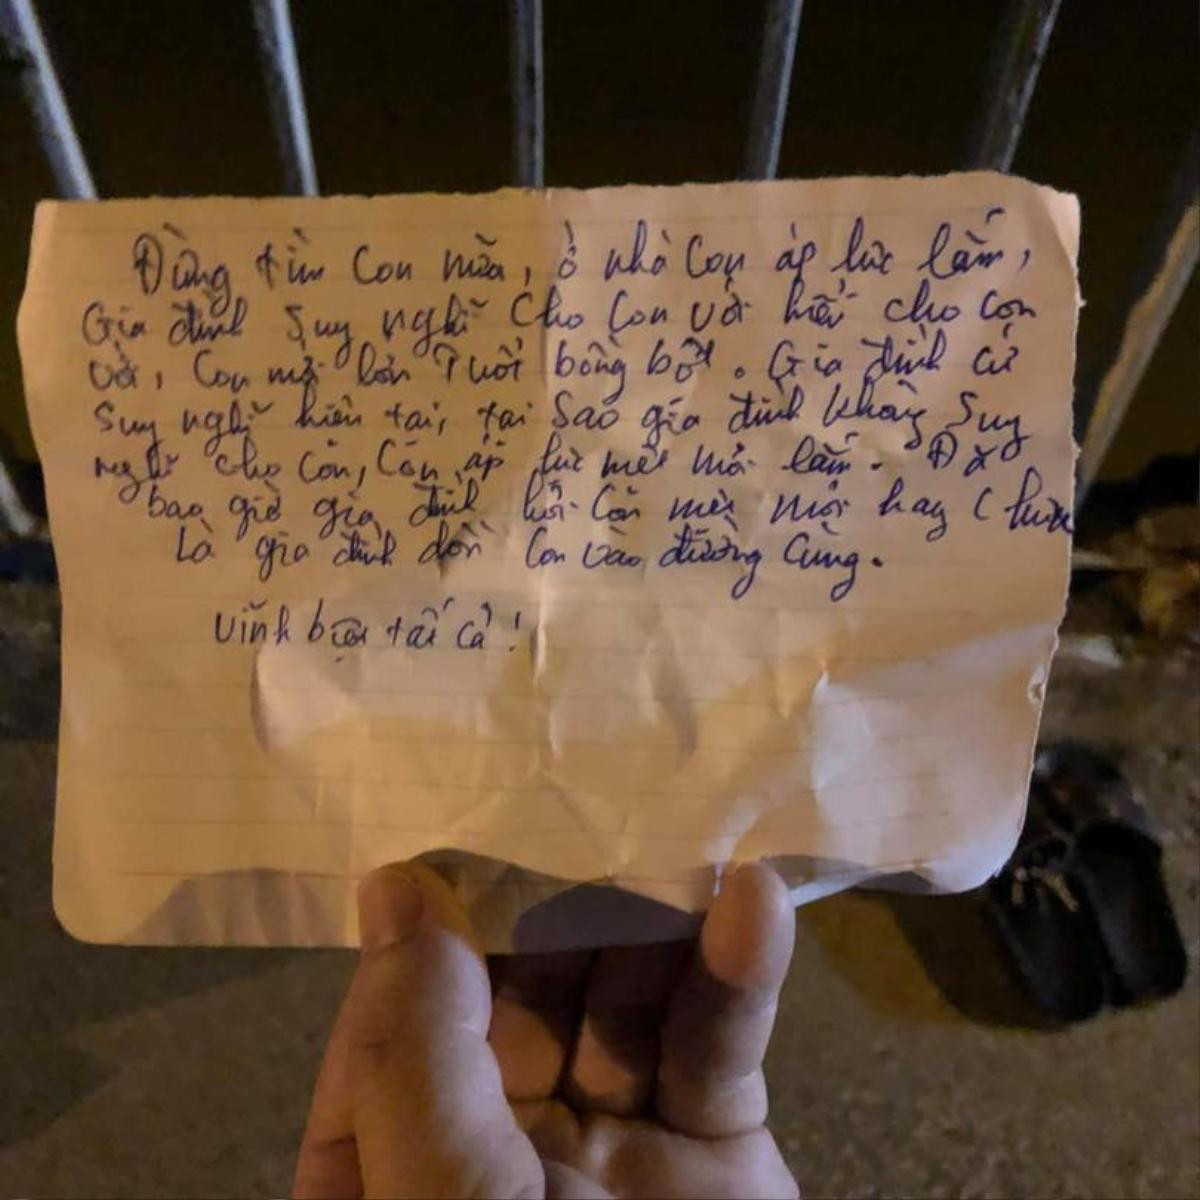 Đừng tìm con nữa, ở nhà con áp lực lắm,
Gia đình suy nghĩ cho con với hiểu cho con
với, con mới lớn tuổi bồng bột. Gia đình cứ
suy nghĩ hiện tại, tại sao gia đình không suy
nghĩ cho con, con áp lực mệt mỏi lắm. Đã
bao giờ gia đình hỏi con mệt mỏi hay chưa
Là gia đình dồn con vào đường cùng.
Vĩnh biệt tất cả!